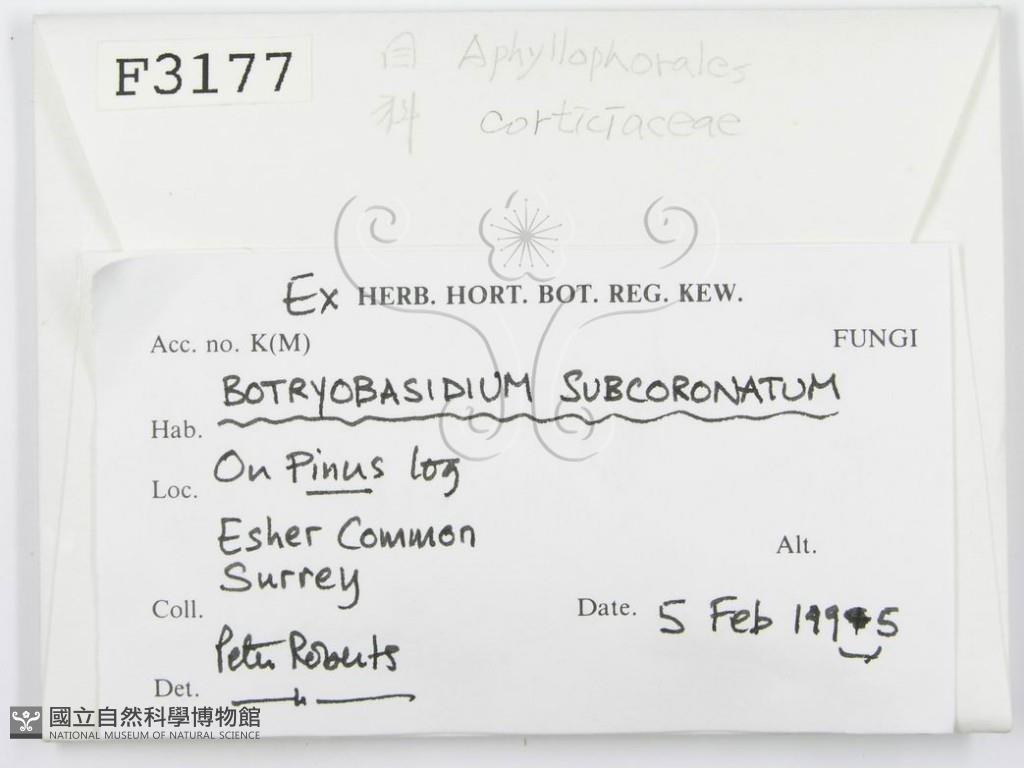 F3177
目 Aphyllophorales
科 corticiaceae
Ex HERB. HORT. BOT. REG. KEW.
Acc. no. K(M)
FUNGI
BOTRYOBASIDIUM SUBCORONATUM
Hab.
On Pinus log
Loc.
Esher Common
Alt.
Surrey
Coll.
Date. 5 Feb 1995
Peter Roberts
Det.
國立自然科學博物館
NATIONAL MUSEUM OF NATURAL SCIENCE